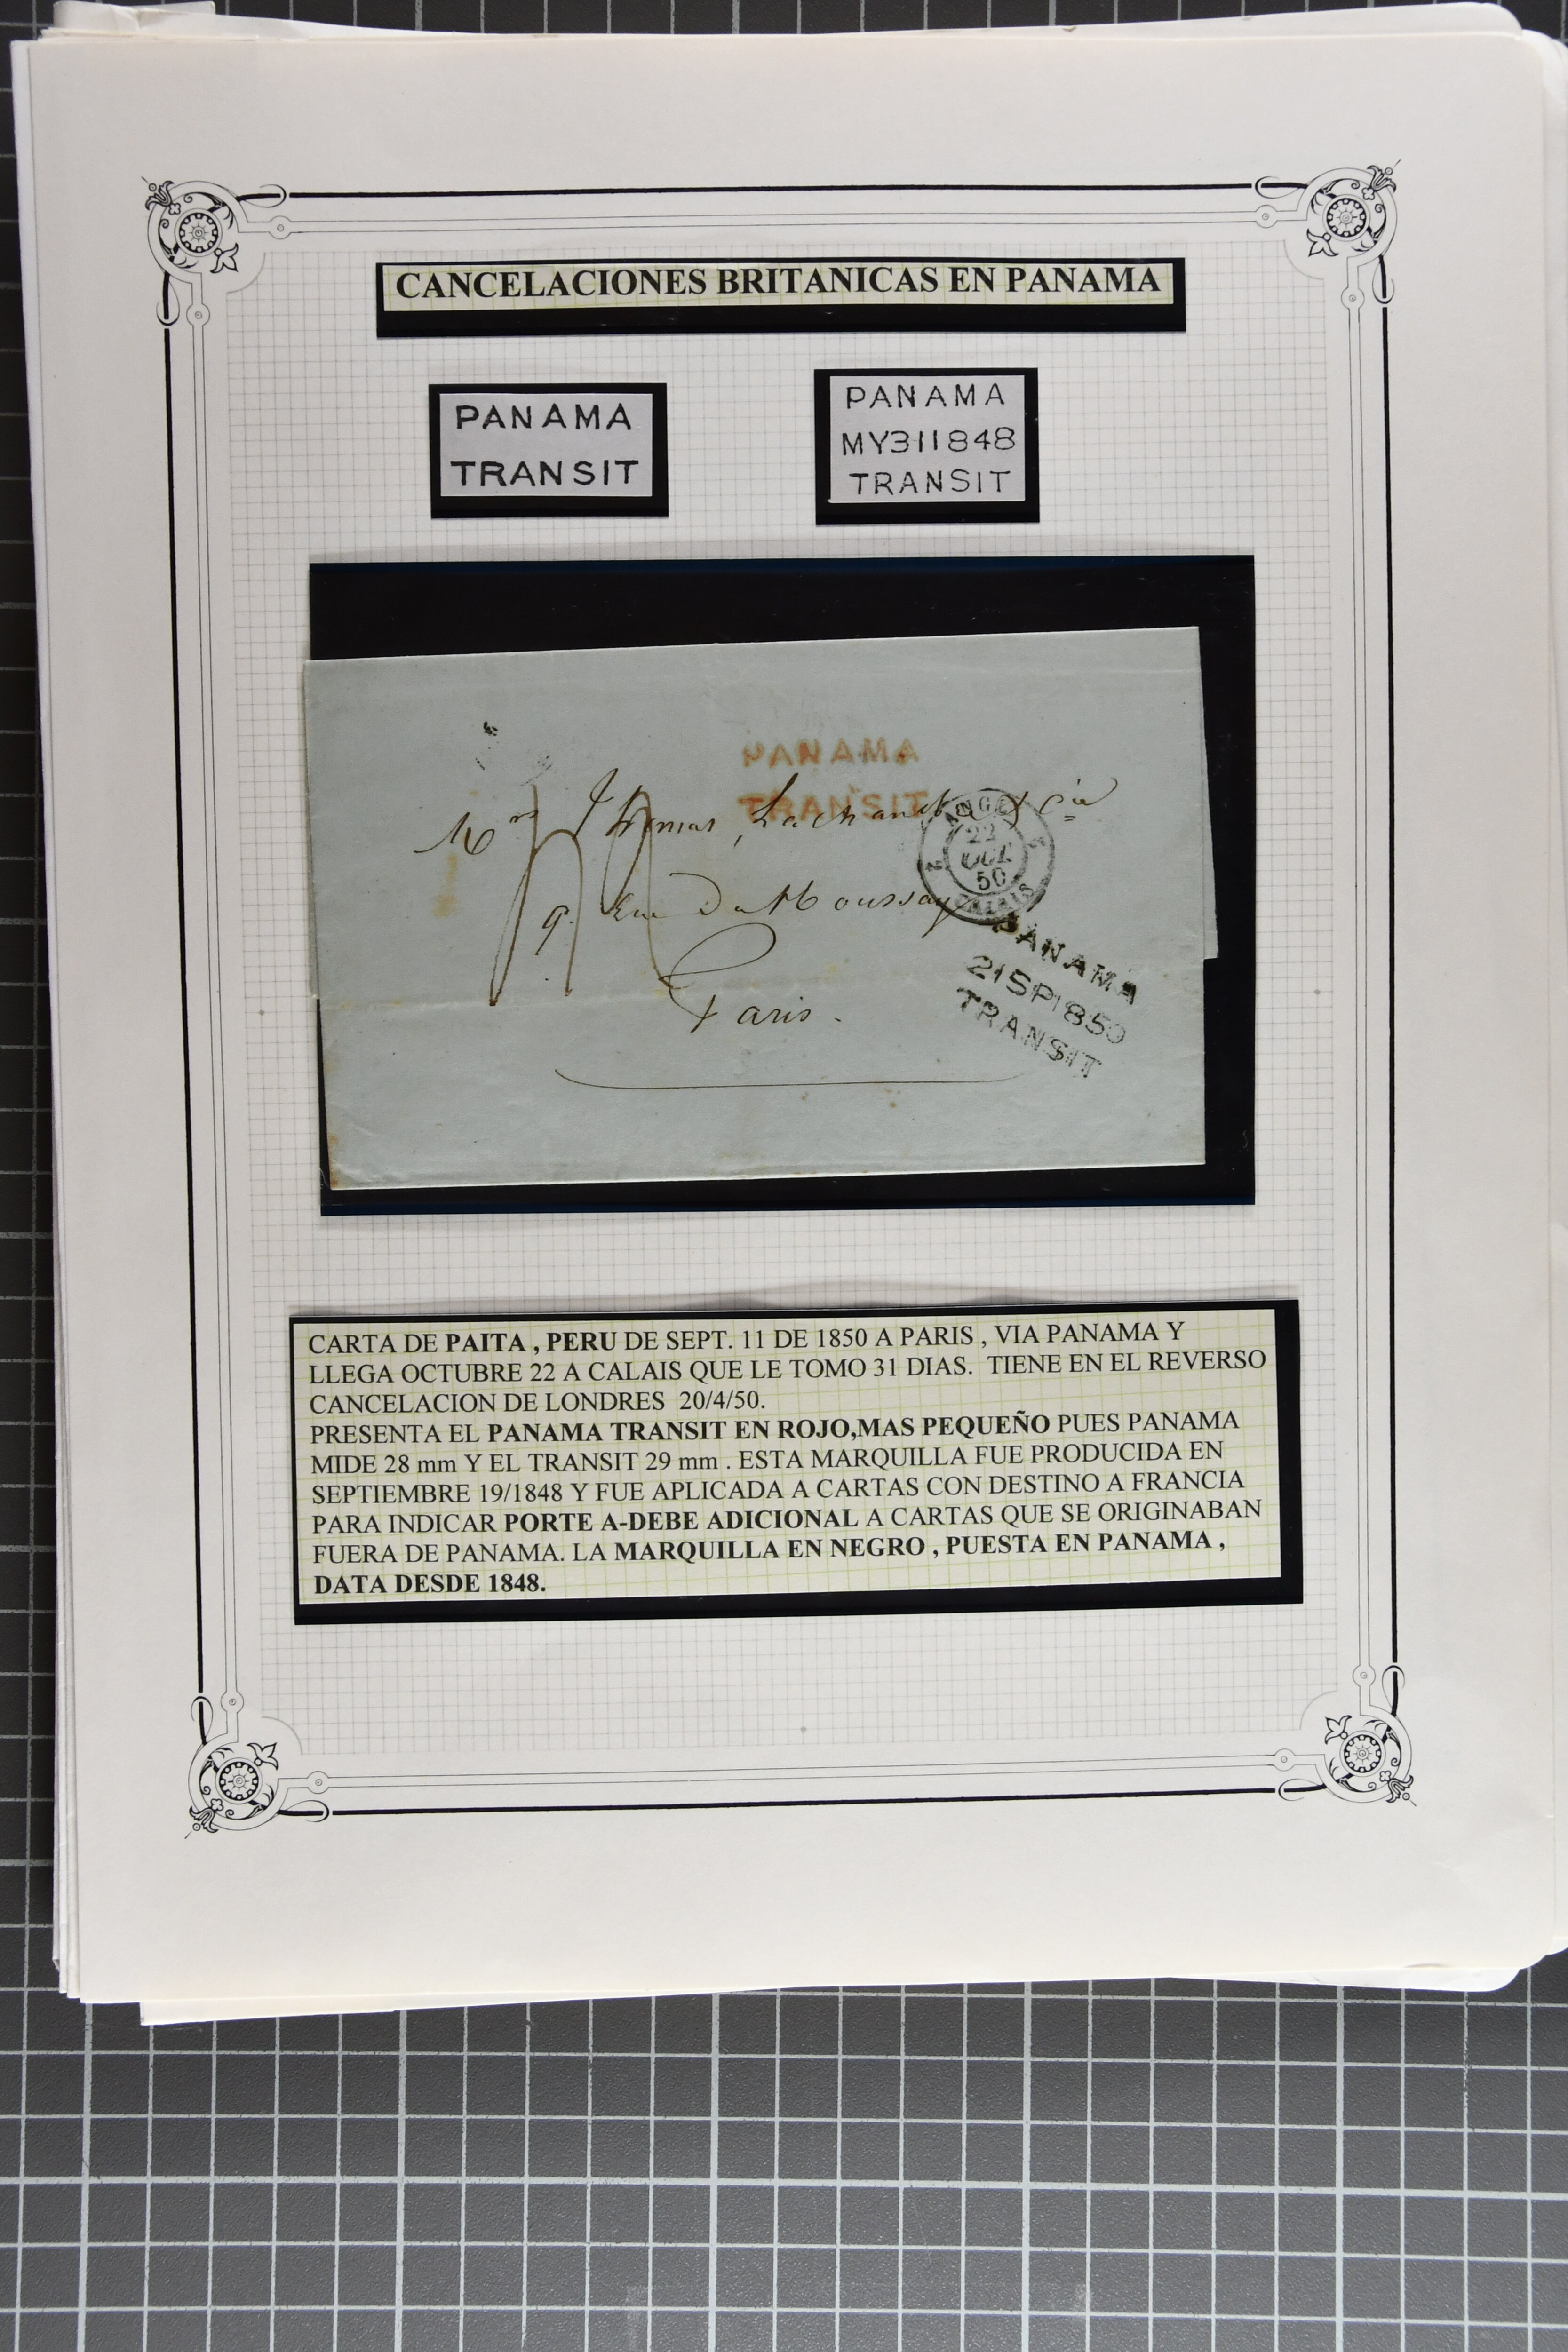 CANCELACIONES BRITANICAS EN PANAMA
PANAMA
TRANSIT
PANAMA
MY311848
TRANSIT
PANAMA
TRANSIT
Mrs Thomas, Lachambre & Cie
22
OCT
50
CALAIS
9. Rue Du Houssay
Paris.
PANAMA
21SP1850
TRANSIT
CARTA DE PAITA , PERU DE SEPT. 11 DE 1850 A PARIS , VIA PANAMA Y
LLEGA OCTUBRE 22 A CALAIS QUE LE TOMO 31 DIAS. TIENE EN EL REVERSO
CANCELACION DE LONDRES 20/4/50.
PRESENTA EL PANAMA TRANSIT EN ROJO,MAS PEQUEÑO PUES PANAMA
MIDE 28 mm Y EL TRANSIT 29 mm . ESTA MARQUILLA FUE PRODUCIDA EN
SEPTIEMBRE 19/1848 Y FUE APLICADA A CARTAS CON DESTINO A FRANCIA
PARA INDICAR PORTE A-DEBE ADICIONAL A CARTAS QUE SE ORIGINABAN
FUERA DE PANAMA. LA MARQUILLA EN NEGRO , PUESTA EN PANAMA ,
DATA DESDE 1848.